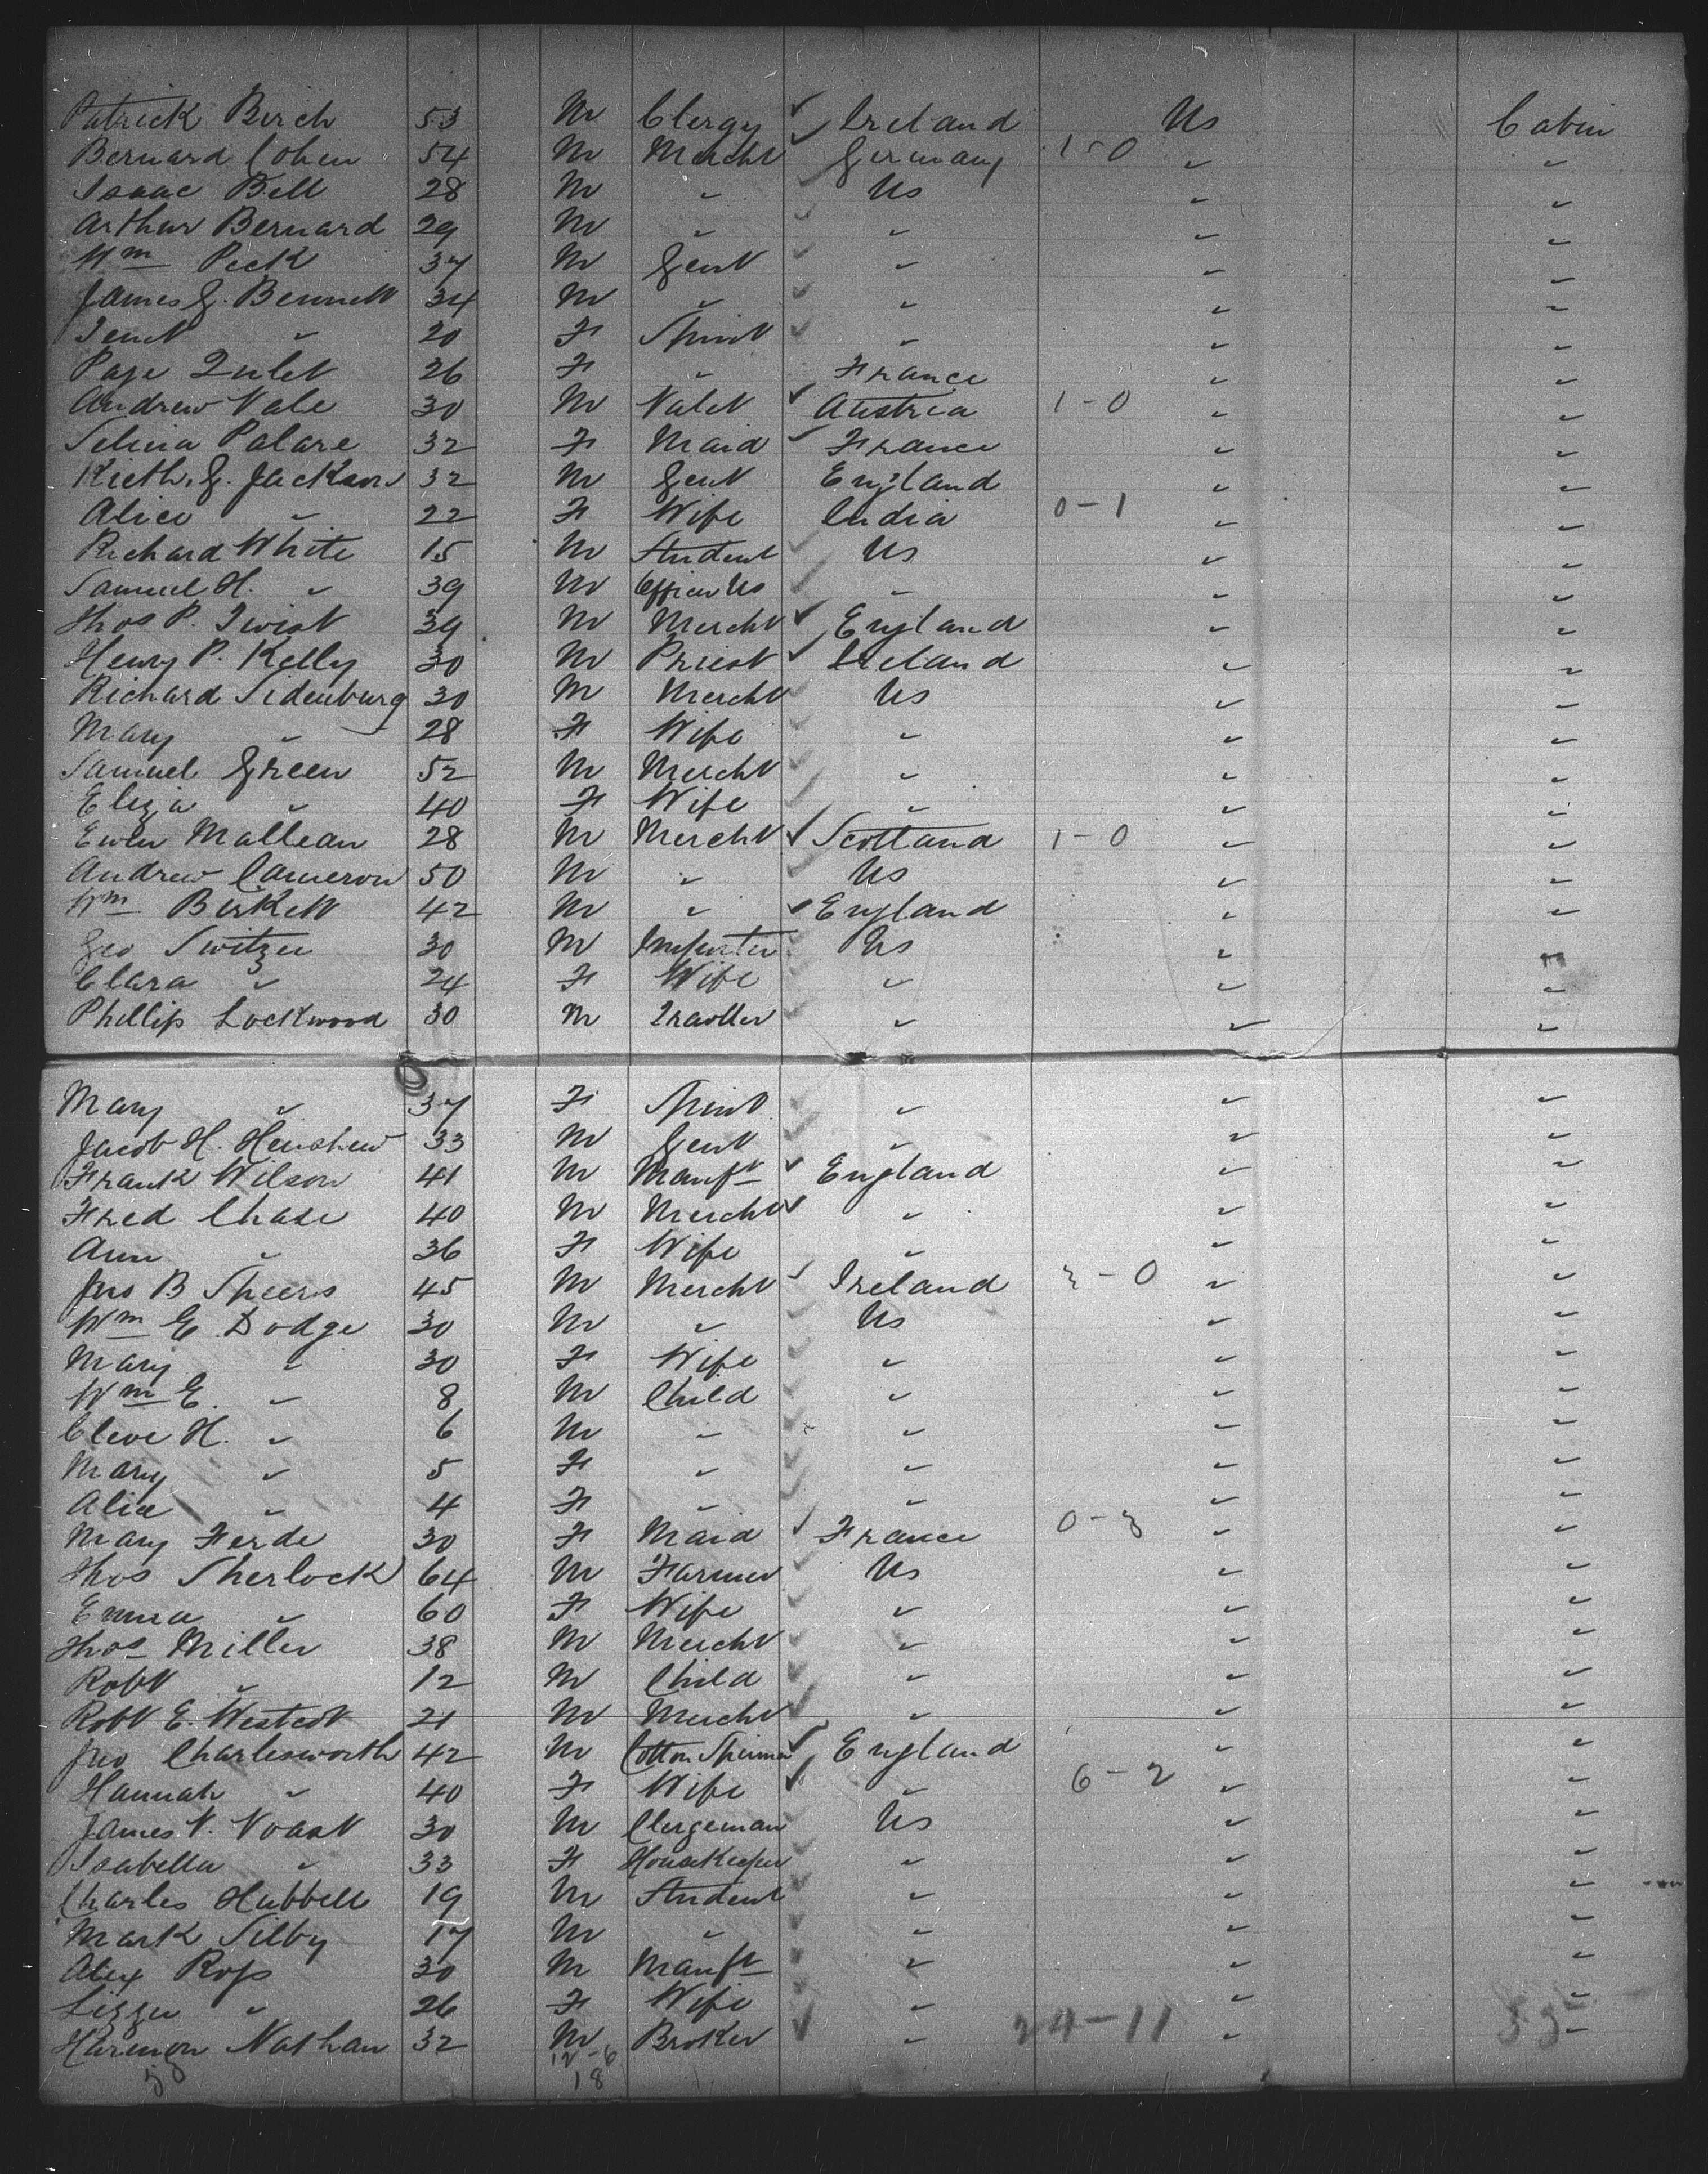 Patrick Birch 53 M Clergy Ireland Us Cabin
Bernard Cohen 54 M Mercht Germany 1-0 " "
Isaac Bell 28 M " Us " "
Arthur Bernard 29 M " " " "
Wm Peck 37 M Gent " " "
James G. Bennett 34 M " " " "
" 20 F Spinst " " "
26 F " France " "
Andrew Vale 30 M Valet Austria 1-0 " "
Selina Palare 32 F Maid France " "
Kieth. G. Jackson 32 M Gent England " "
Alice " 22 F Wife India 0-1 " "
Richard White 15 M Student Us " "
Samuel H. " 39 M Officer Us " " "
Thos P. Twist 39 M Mercht England " "
Henry P. Kelly 30 M Priest Ireland " "
Richard Sidenburg 30 M Mercht Us " "
Mary " 28 F Wife " " "
Samuel Green 52 M Mercht " " "
Eliza " 40 F Wife " " "
Ewen Mallean 28 M Mercht Scotland 1-0 " "
Andrew Cameron 50 M " Us " "
Wm Birkett 42 M " England " "
Geo Switzer 30 M Importer Us " "
Clara " 24 F Wife " " "
Phillip Lockwood 30 M Traveller " " "
Mary " 37 F Spinst " " "
Jacob H. Henshew 33 M Gent " " "
Frank Wilson 41 M Manufr England " "
Fred Chase 40 M Mercht " " "
Ann " 36 F Wife " " "
Jno B Speers 45 M Mercht Ireland 3-0 " "
Wm E. Dodge 30 M " Us " "
Mary " 30 F Wife " " "
Wm E. " 8 M Child " " "
Cleve H. " 6 M " " " "
Mary " 5 F " " " "
Alice " 4 F " " " "
Mary Ferde 30 F Maid France 0-3 " "
Thos Sherlock 64 M Farmer Us " "
Emma " 60 F Wife " " "
Thos Miller 38 M Mercht " " "
Robt " 12 M Child " " "
Robt E. Westcot 21 M Mercht " " "
Jno Charlesworth 42 M Cotton Spinner England " "
Hannah " 40 F Wife " 6-2 " "
James N. Voast 30 M Clergeman Us " "
Isabella " 33 F HouseKeeper " " "
Charles Hubbell 19 M Student " " "
Mark Silby 17 M " " " "
Alex Ross 30 M Manufr " " "
Lizzie " 26 F Wife " " "
Harmon Nathan 32 M Broker " 24-11 " "
53 12-6
18